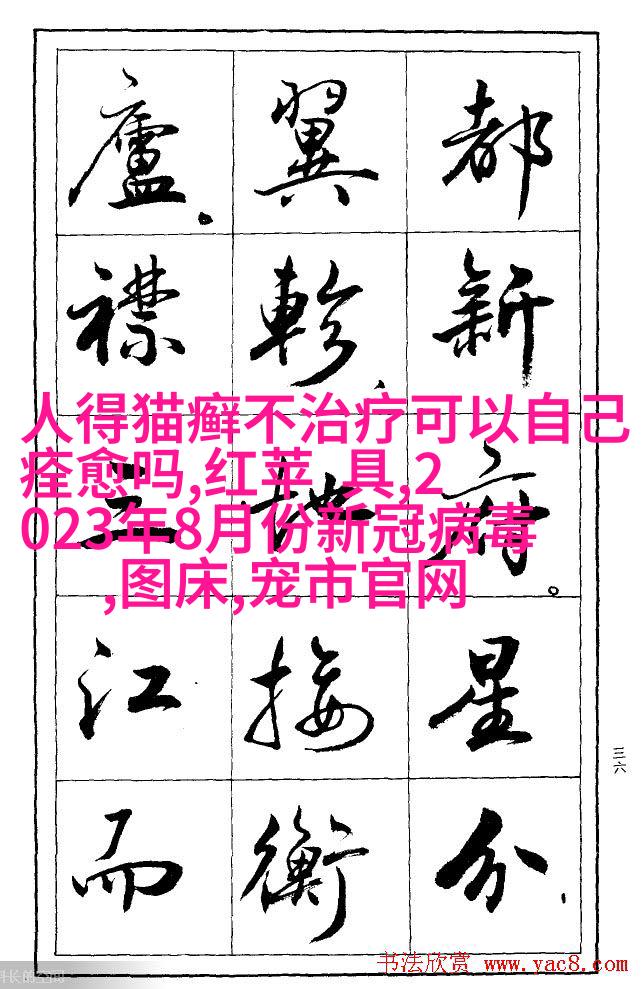 都新府。星分、
翼軫、地接衡
廬。襟三江而
人得猫癣不治疗可以自己
痊愈吗,红苹 具,2
023年8月份新冠病毒
,图床,宠市官网
三六
书法欣赏 www.yac8.com
长的空间